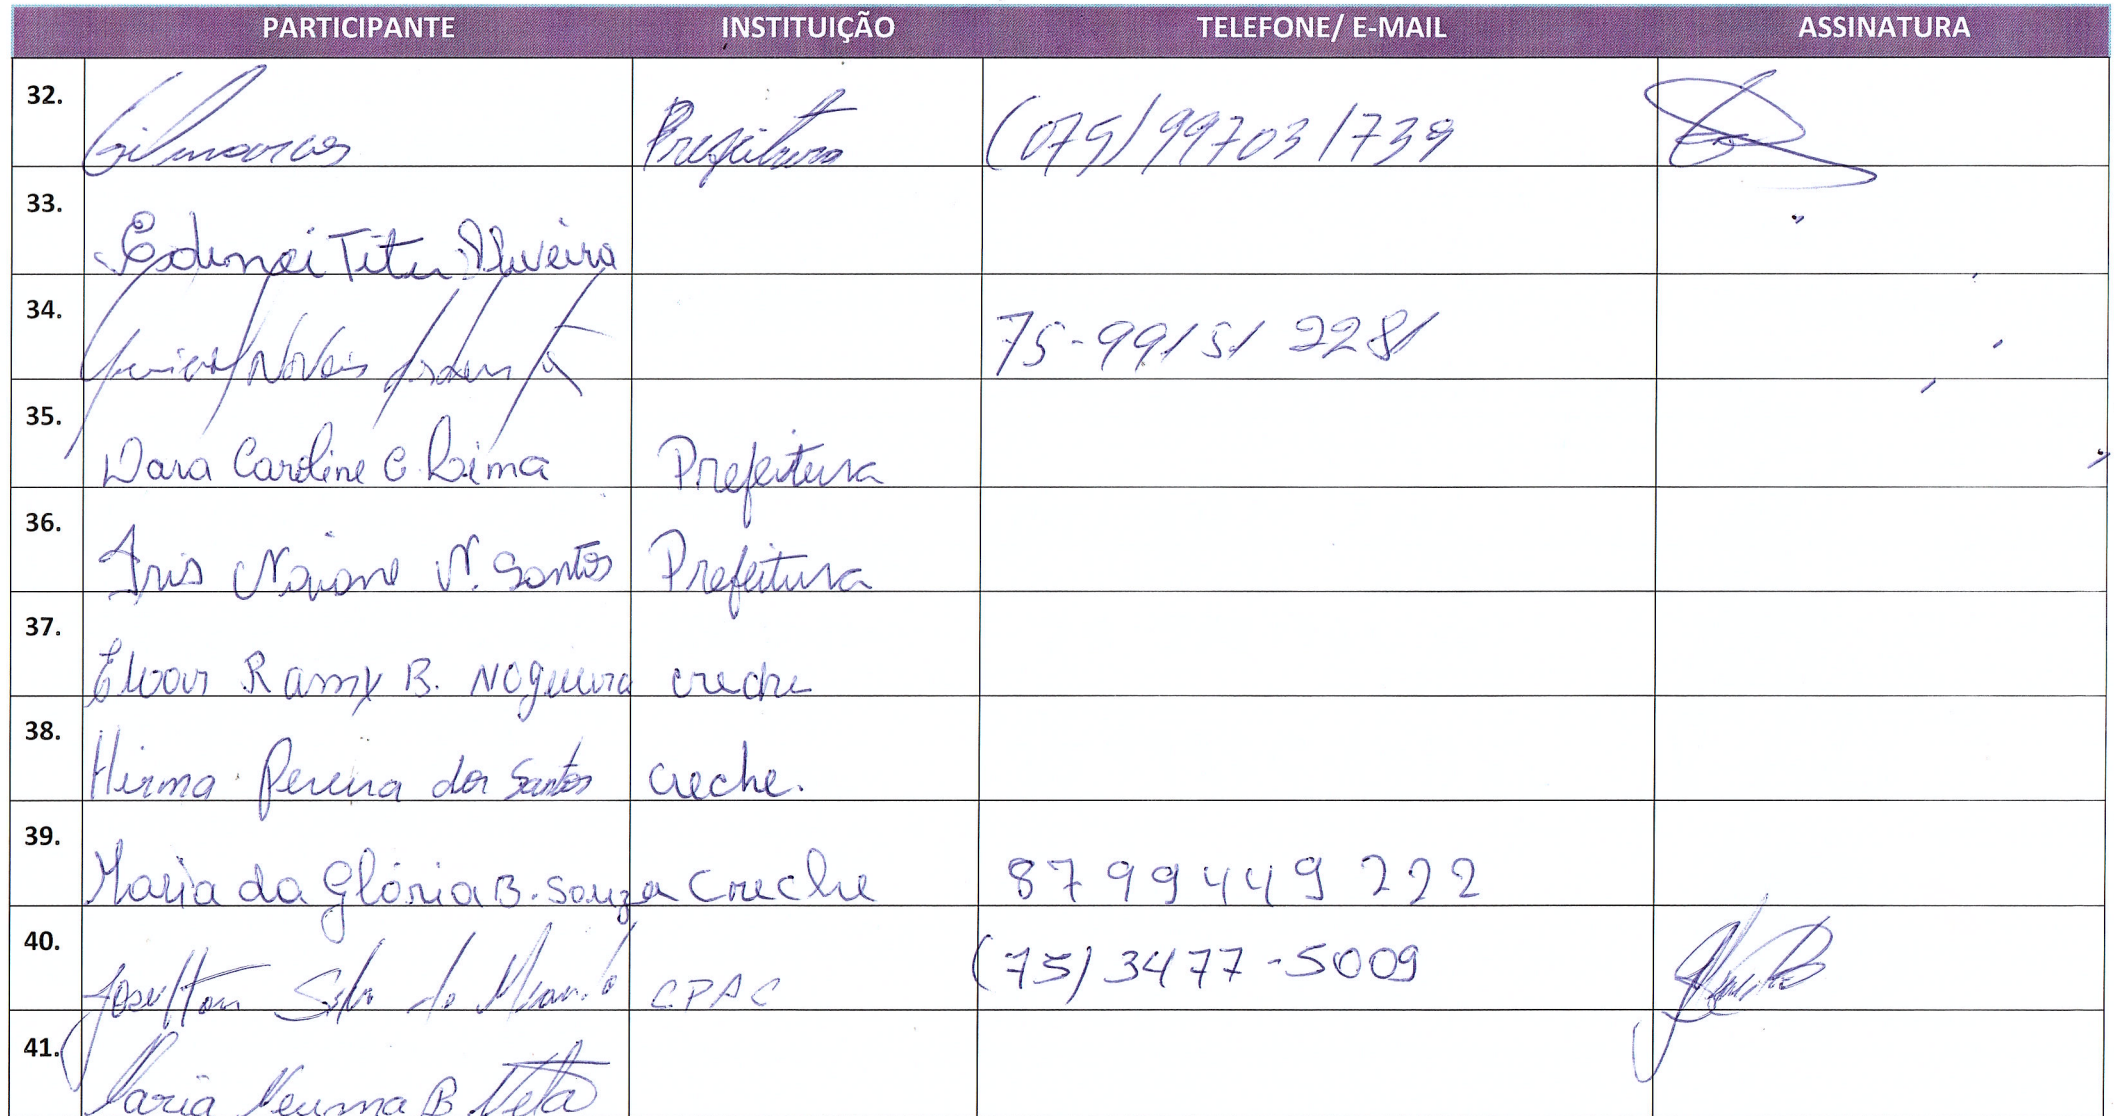 PARTICIPANTE INSTITUIÇÃO TELEFONE/ E-MAIL ASSINATURA
32. Gilmarcos Prefeitura (075) 997031739
33. Edimei Oliveira
34. Novais 75-99151 2281
35. Dara Caroline C Lima Prefeitura
36. Iris Naiane N. Santos Prefeitura
37. Ramy B. Nogueira creche
38. Hirma Pereira dos Santos creche.
39. Maria da Glória B. Souza Creche 8799449222
40. Joseilton Silva de CPAC (75) 3477-5009
41. Maria Neuma B Neta